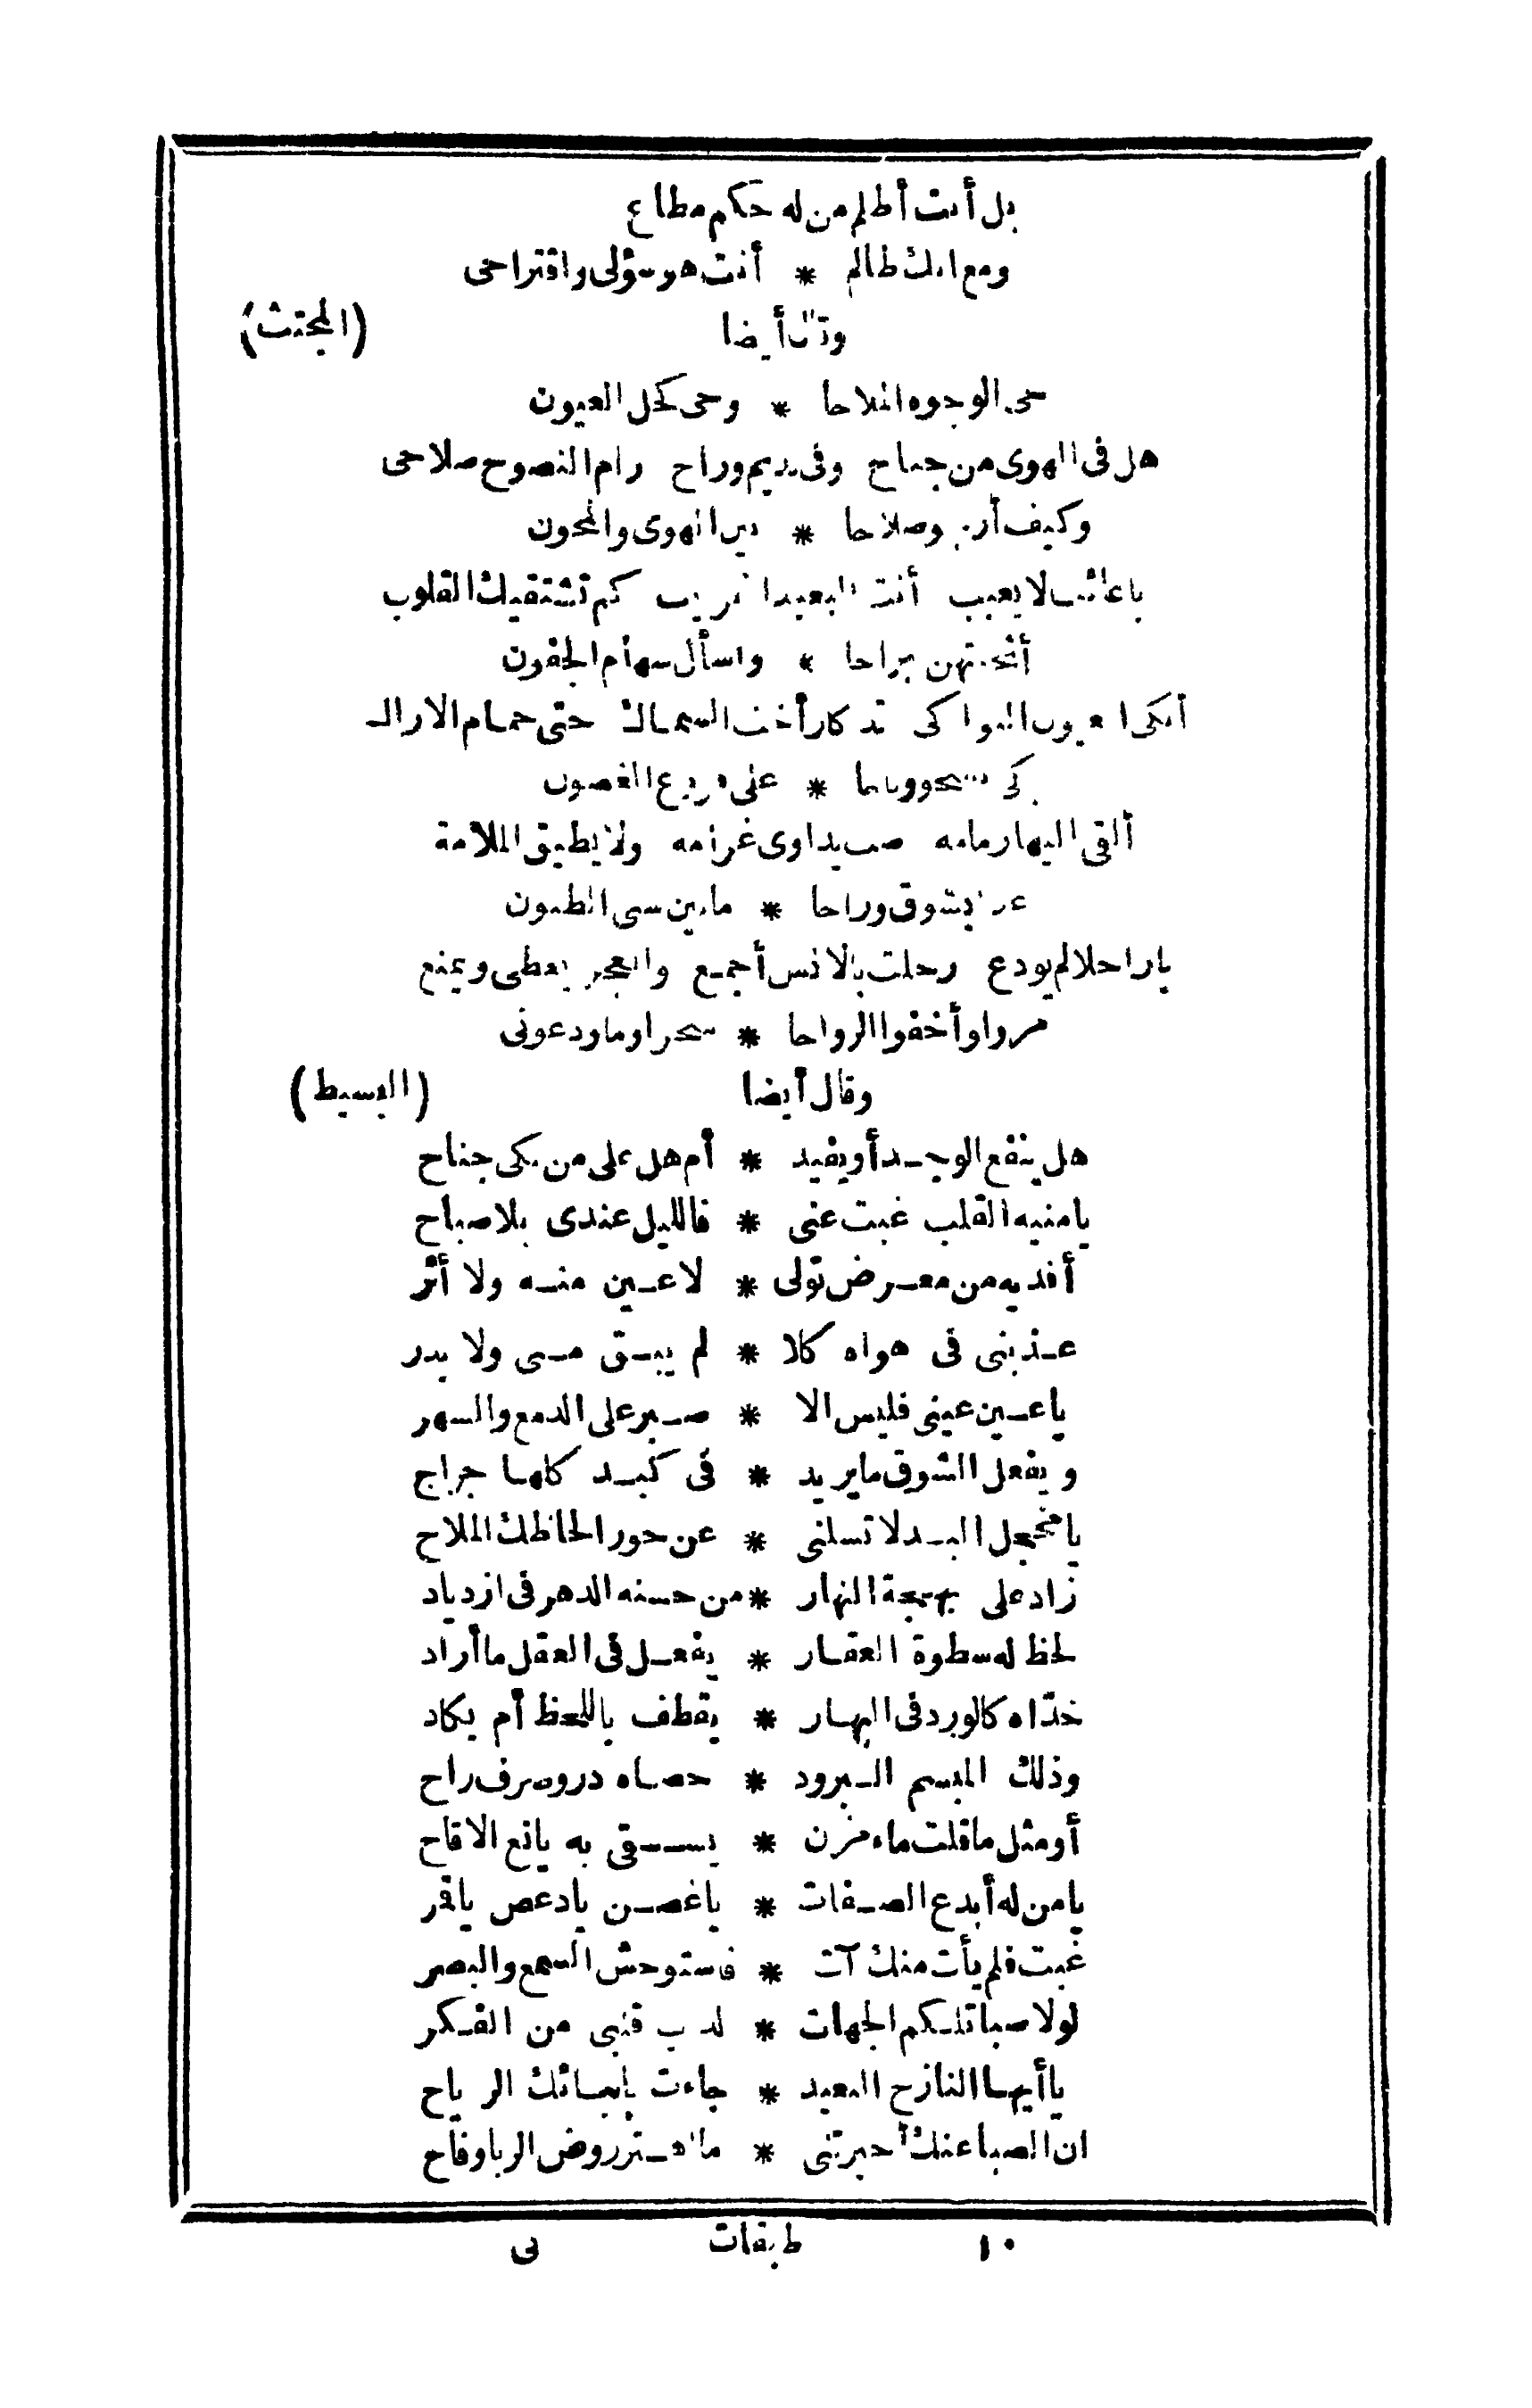 بل أنت أظلم من له حكم مطاع
ومع انك ظالم * أنت هو سؤلى واقتراحى
وقال أيضا (المجتث)
حى الوجوه الملاحا * وحى كحل العيون
هل فى الهوى من جناح وفى نديم وراح رام النصوح صلاحى
وكيف أرجو صلاحا * بين الهوى والمجون
ياغائب لا يغيب أنت البعيد القريب كم تشتفيك القلوب
أثخنتهن جراحا * واسأل سهام الجفون
أبكى العيون البواكى تذكار أخت السماك حتى حمام الاراك
بكى بشجو وناحا * على فروع الغصون
ألقى اليها زمامه صب يداوى غرامه ولا يطيق الملامة
غدا بشوق وراحا * مابين سى الظنون
ياراحلا لم يودع رحلت بالانس أجمع والفجر يعطى ويمنع
مروا وأخفوا الرواحا * سحرا وما ودعونى
وقال أيضا (البسيط)
هل ينفع الوجد أو يفيد * أم هل على من بكى جناح
يامنيه القلب غبت عنى * فالليل عندى بلا صباح
أفديه من معرض تولى * لا عين منه ولا أثر
عذبنى فى هواه كلا * لم يبق منى ولا يدر
ياعين عينى فليس الا * صبر على الدمع والسهر
ويفعل الشوق مايريد * فى كبد كلها جراح
يامخجل البدر لا تسلنى * عن حور الحاظك الملاح
زاد على بهجة النهار * من حسنه الدهر فى ازدياد
لحظ له سطوة العقار * يفعل فى العقل ما أراد
خدّاه كالورد فى البهار * يقطف باللحظ أم يكاد
وذلك المبسم البرود * حصاه در وصرف راح
أو مثل ماقلت ماء مزن * يسقى به يانع الاقاح
يامن له أبدع الصفات * ياغصن يادعص ياقمر
غبت فلم يأت منك آت * فاستوحش السمع والبصر
لولا صبا تلكم الجهات * لذب قلبى من الفكر
ياأيها النازح البعيد * جاءت بانبائك الرياح
ان الصبا عنك أخبرتنى * مااهتز روض الربا وفاح
١٠ طبقات نى